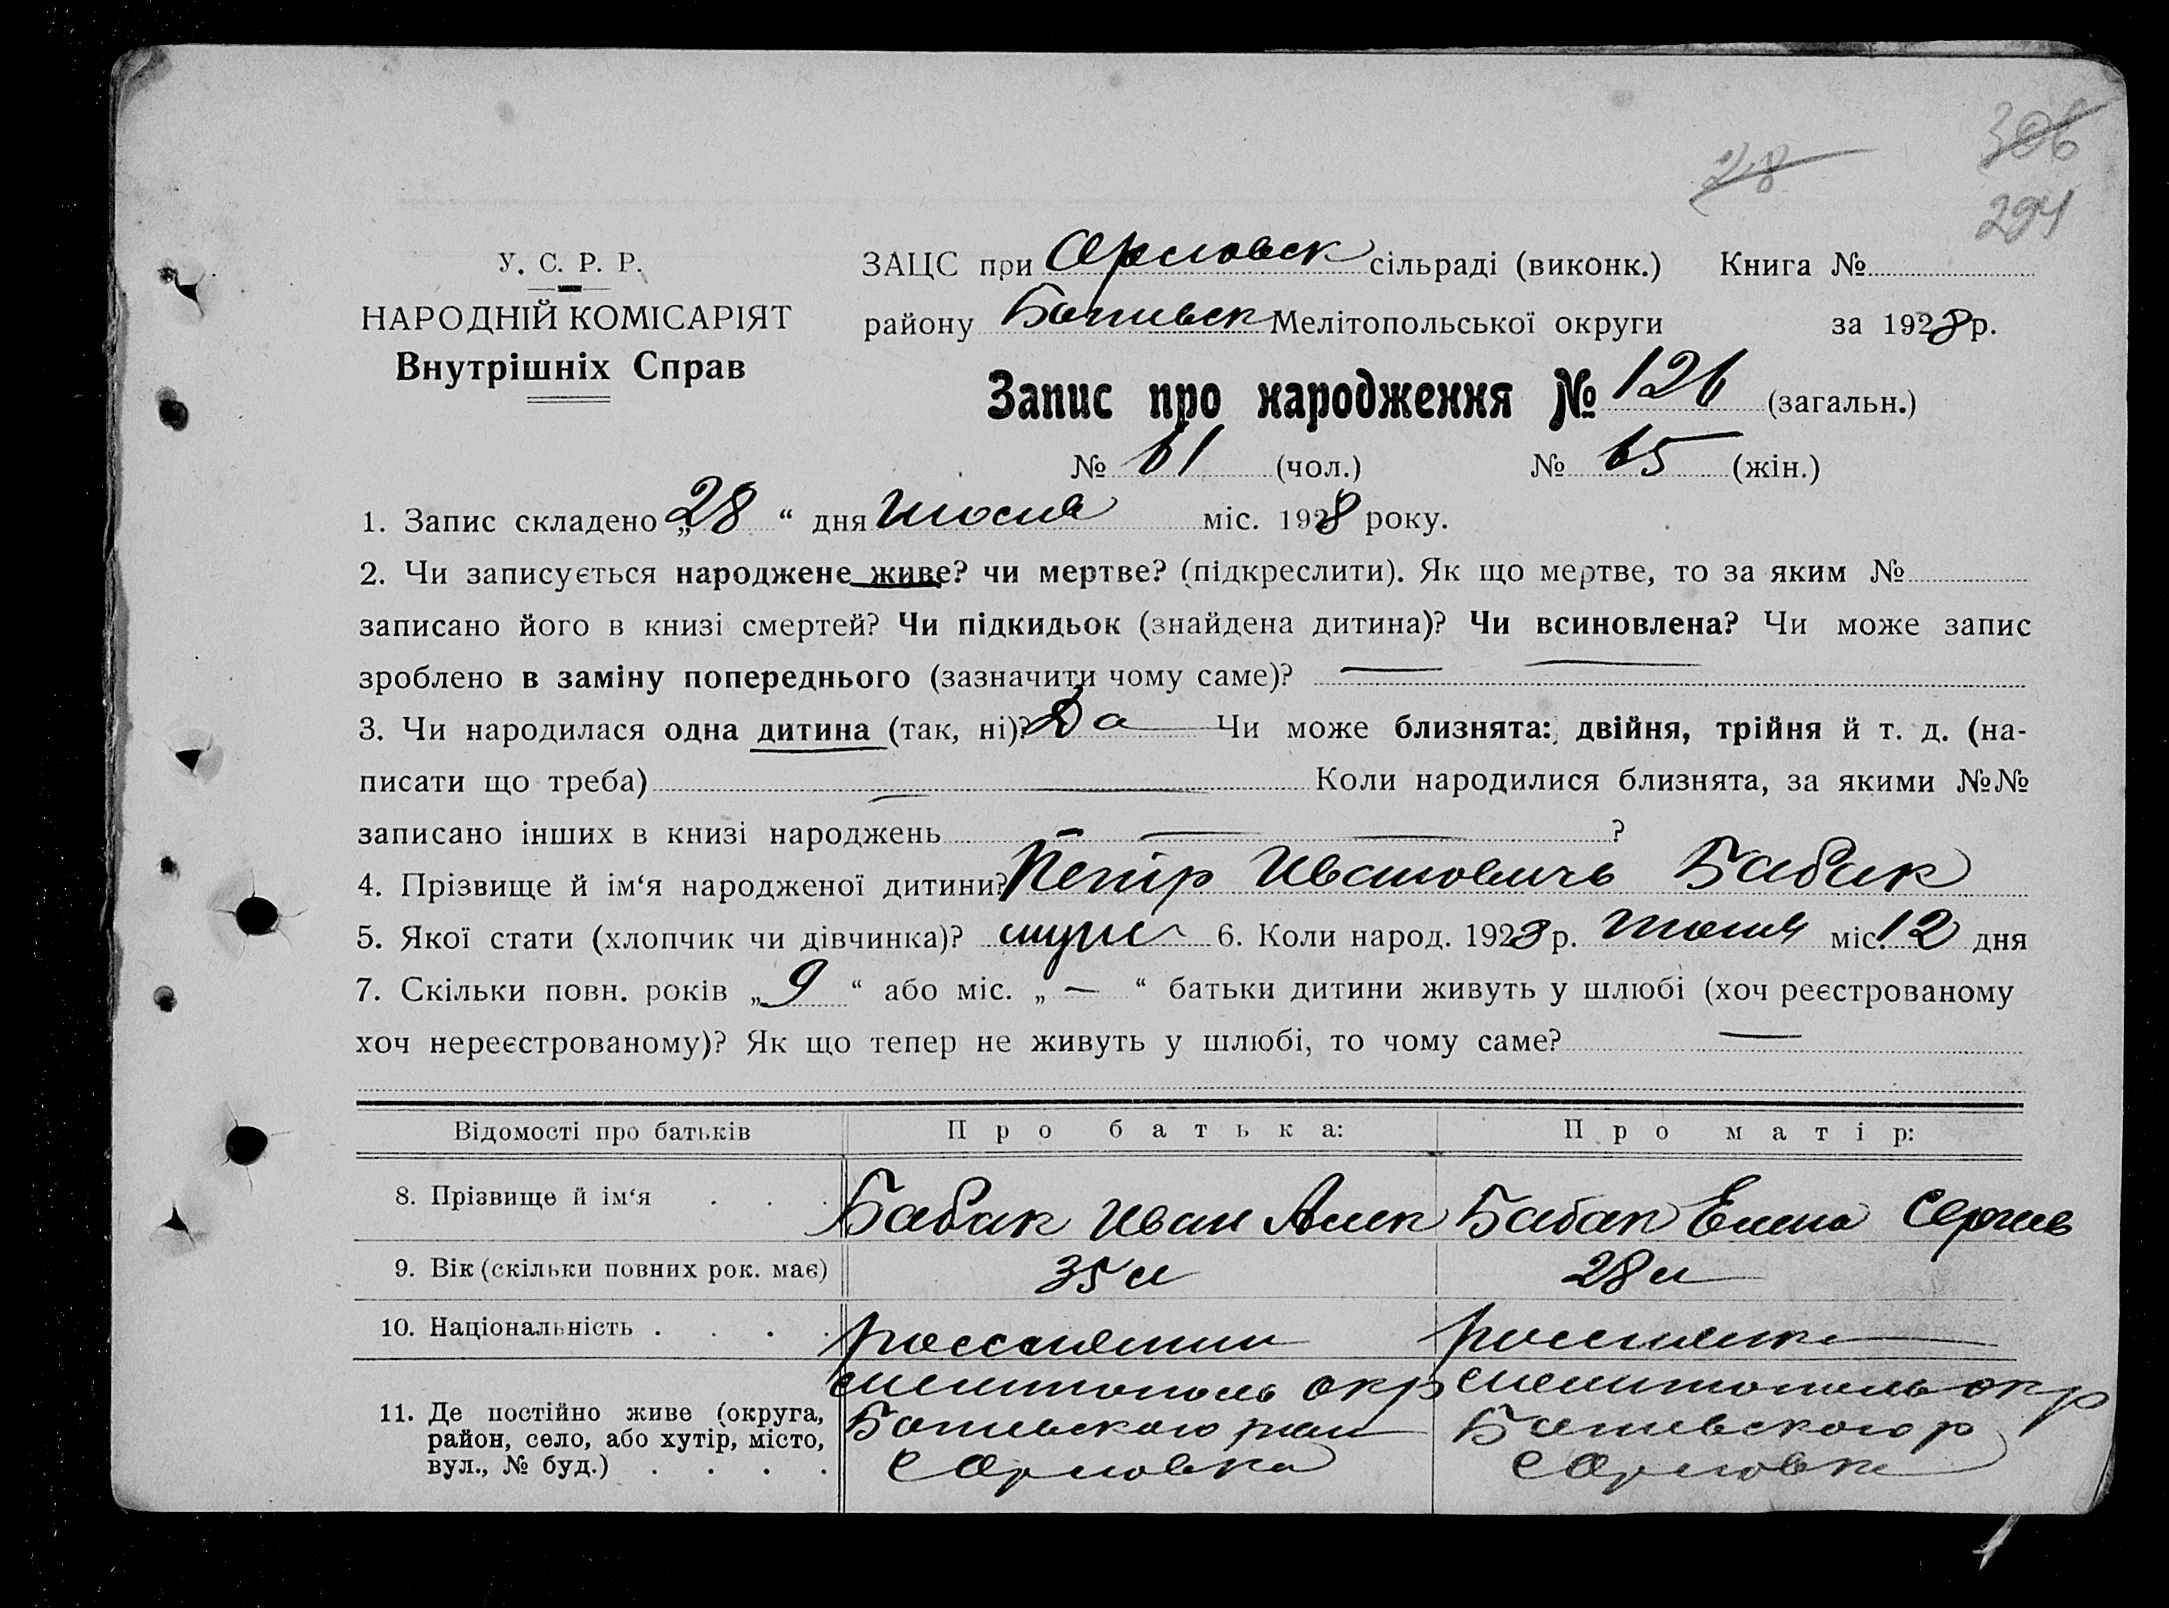 306
28
294
У. С. Р. Р.
НАРОДНІЙ КОМІСАРІЯТ
Внутрішніх Справ
ЗАЦС при Орловск сільраді (виконк.) Книга №
району Ботиевск Мелітопольської округи за 1928 р.
Запис про народження № 126 (загальн.)
№ 61 (чол.) № 65 (жін.)
1. Запис складено „28“ дня Июня міс. 1928 року.
2. Чи записується народжене живе? чи мертве? (підкреслити). Як що мертве, то за яким №
записано його в книзі смертей? Чи підкидьок (знайдена дитина)? Чи всиновлена? Чи може запис
зроблено в заміну попереднього (зазначити чому саме)? —
3. Чи народилася одна дитина (так, ні)? Да Чи може близнята: двійня, трійня й т. д. (на-
писати що треба) — Коли народилися близнята, за якими №№
записано інших в книзі народжень — ?
4. Прізвище й ім‘я народженої дитини? Петр Ивановичь Бабак
5. Якої стати (хлопчик чи дівчинка)? муж 6. Коли народ. 1928 р. Июня міс. 12 дня
7. Скільки повн. років „9“ або міс. „—“ батьки дитини живуть у шлюбі (хоч реєстрованому
хоч нереєстрованому)? Як що тепер не живуть у шлюбі, то чому саме? —
Відомості про батьків Про батька: Про матір:
8. Прізвище й ім‘я . . . Бабак Иван Алек Бабак Елена Сергеев
9. Вік (скільки повних рок. має) 35 л 28 л
10. Національність . . . . россиянин россиянка
11. Де постійно живе (округа, мелитополь окр мелитополь окр
район, село, або хутір, місто, Ботиевского рай Ботиевского р
вул., № буд.) . . . . с Орловка с Орловка